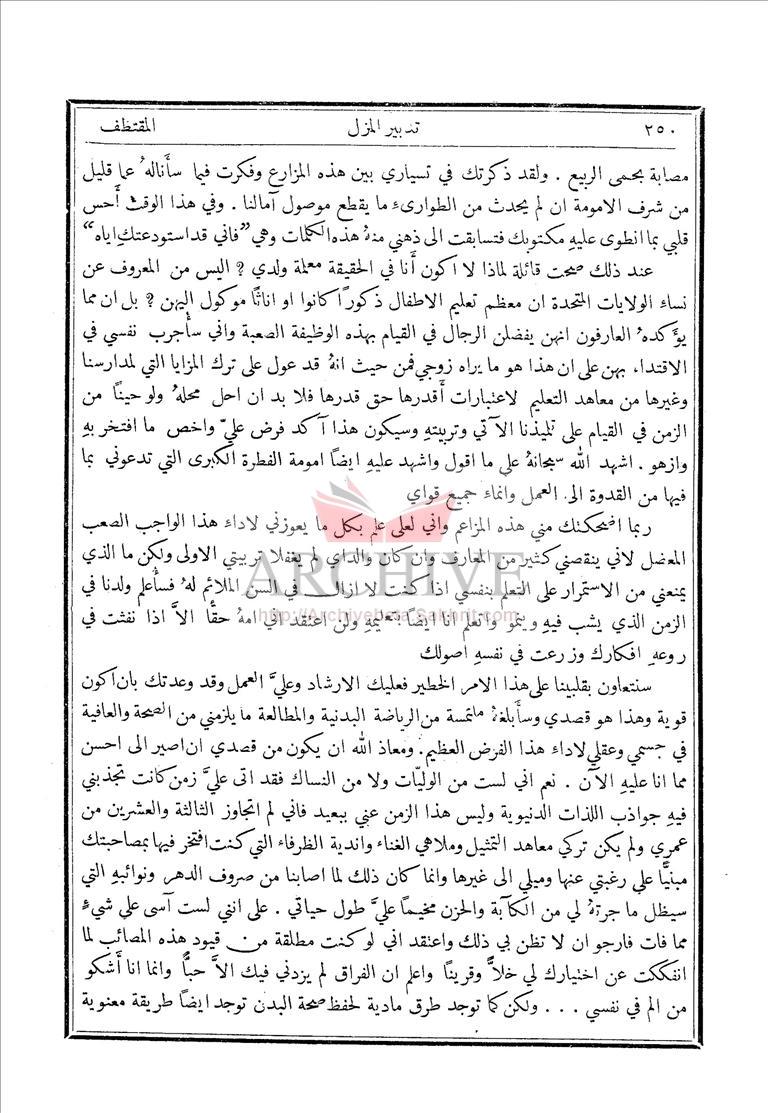 ٢٥٠ تدبير المنزل المقتطف
مصابة بحمى الربيع . ولقد ذكرتك في تسياري بين هذه المزارع وفكرت فيما سأناله عما قليل
من شرف الامومة ان لم يحدث من الطوارىء ما يقطع موصول آمالنا . وفي هذا الوقت أحس
قلبي بما انطوى عليهِ مكتوبك فتسابقت الى ذهني منهُ هذه الكلمات وهي ”فاني قد استودعتكِ اياه“
عند ذلك صحت قائلة لماذا لا اكون أنا في الحقيقة معلمة ولدي ? اليس من المعروف عن
نساء الولايات المتحدة ان معظم تعليم الاطفال ذكوراً كانوا او اناثاً موكول اليهن ? بل ان مما
يؤكدهُ العارفون انهن يفضلن الرجال في القيام بهذه الوظيفة الصعبة واني سأجرب نفسي في
الاقتداء بهن على ان هذا هو ما يراه زوجي فمن حيث انهُ قد عول على ترك المزايا التي لمدارسنا
وغيرها من معاهد التعليم لاعتبارات أقدرها حق قدرها فلا بد ان احل محلهُ ولو حيناً من
الزمن في القيام على تلميذنا الآتي وتربيتهِ وسيكون هذا آكد فرض عليّ واخص ما افتخر بهِ
وازهو . اشهد الله سبحانهُ على ما اقول واشهد عليهِ ايضاً امومة الفطرة الكبرى التي تدعوني بما
فيها من القدوة الى العمل وانماء جميع قواي
ربما اضحكتك مني هذه المزاعم واني لعلى علم بكل ما يعوزني لاداء هذا الواجب الصعب
المعضل لاني ينقصني كثير من المعارف وان كان والداي لم يغفلا تربيتي الاولى ولكن ما الذي
يمنعني من الاستمرار على التعلم بنفسي اذا كنت لا ازال في السن الملائم لهُ فسأعلم ولدنا في
الزمن الذي يشب فيهِ وينمو واتعلم انا ايضاً بتعليمهِ ولن اعتقد اني امهُ حقًّا الاَّ اذا نفثت في
روعهِ افكارك وزرعت في نفسهِ اصولك
سنتعاون بقلبينا على هذا الامر الخطير فعليك الارشاد وعليَّ العمل وقد وعدتك بان اكون
قوية وهذا هو قصدي وسأبلغهُ ملتمسة من الرياضة البدنية والمطالعة ما يلزمني من الصحة والعافية
في جسمي وعقلي لاداء هذا الفرض العظيم . ومعاذ الله ان يكون من قصدي ان اصير الى احسن
مما انا عليهِ الآن . نعم اني لست من الوليّات ولا من النساك فقد اتى عليَّ زمن كانت تجذبني
فيهِ جواذب اللذات الدنيوية وليس هذا الزمن عني ببعيد فاني لم اتجاوز الثالثة والعشرين من
عمري ولم يكن تركي معاهد التمثيل وملاهي الغناء واندية الظرفاء التي كنت افتخر فيها بمصاحبتك
مبنيًّا على رغبتي عنها وميلي الى غيرها وانما كان ذلك لما اصابنا من صروف الدهر ونوائبهِ التي
سيظل ما جرتهُ لي من الكآبة والحزن مخيماً عليَّ طول حياتي . على انني لست آسى على شيءٍ
مما فات فارجو ان لا تظن بي ذلك واعتقد اني لو كنت مطلقة من قيود هذه المصائب لما
انفككت عن اختيارك لي خلاًّ وقريناً واعلم ان الفراق لم يزدني فيك الاَّ حبًّا وانما انا أشكو
من الم في نفسي . . . ولكن كما توجد طرق مادية لحفظ صحة البدن توجد ايضاً طريقة معنوية
ARCHIVE
http://Archivebeta.Sakhrit.com